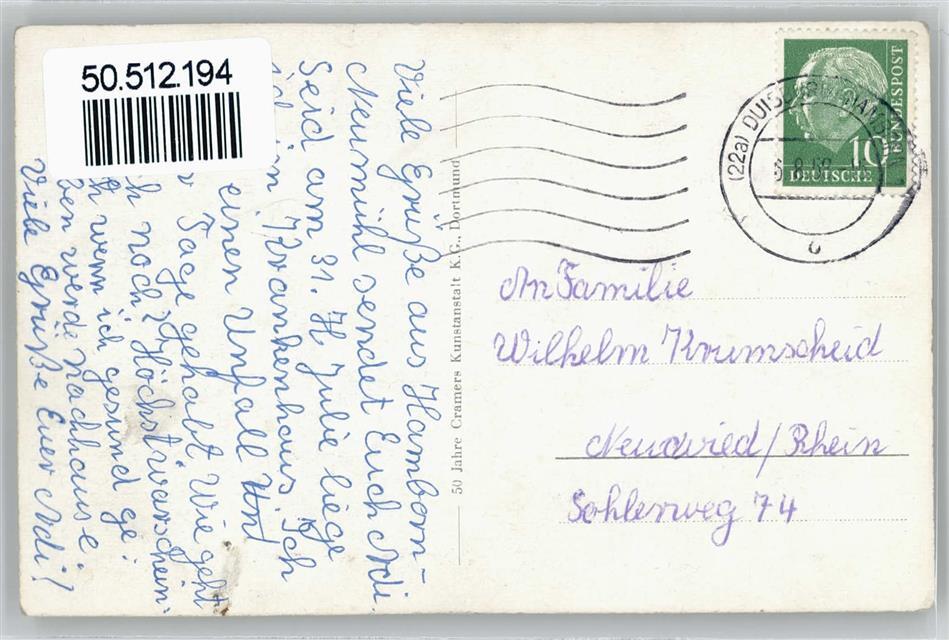 50.512.194
Viele Grüße aus Hamborn-
Neumühl sendet Euch Adi.
Seid am 31. Julie liege
ich im Krankenhaus. Ich
einen Unfall
Tage gehabt. Wie geht
noch? Höchstwarschein-
wenn ich gesund ge-
werde nachhause
Viele Grüße Euer Adi!
50 Jahre Cramers Kunstanstalt K.G., Dortmund
DEUTSCHE
BUNDESPOST
10
(22a) DUISBURG-HAMBORN
An Familie
Wilhelm Krumscheid
Neuwied/Rhein
Sohlerweg 74